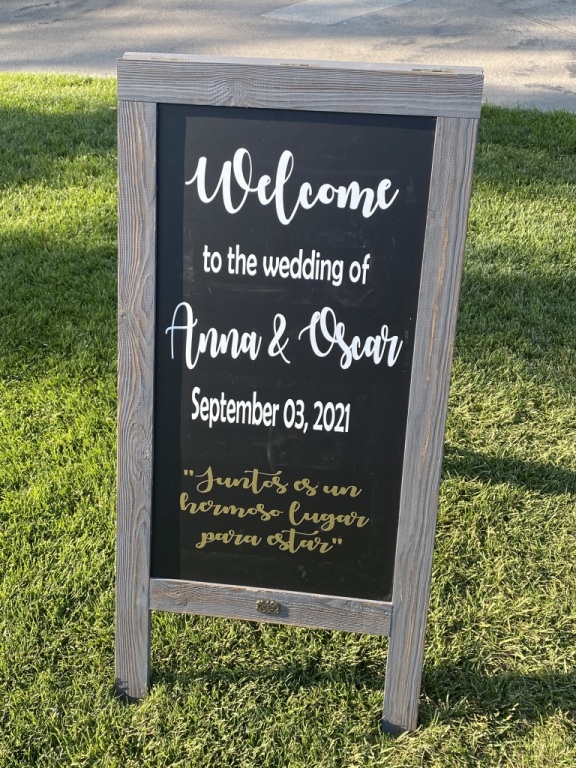 Welcome
to the wedding of
Anna & Oscar
September 03, 2021
"Juntos es un
hermoso lugar
para estar"